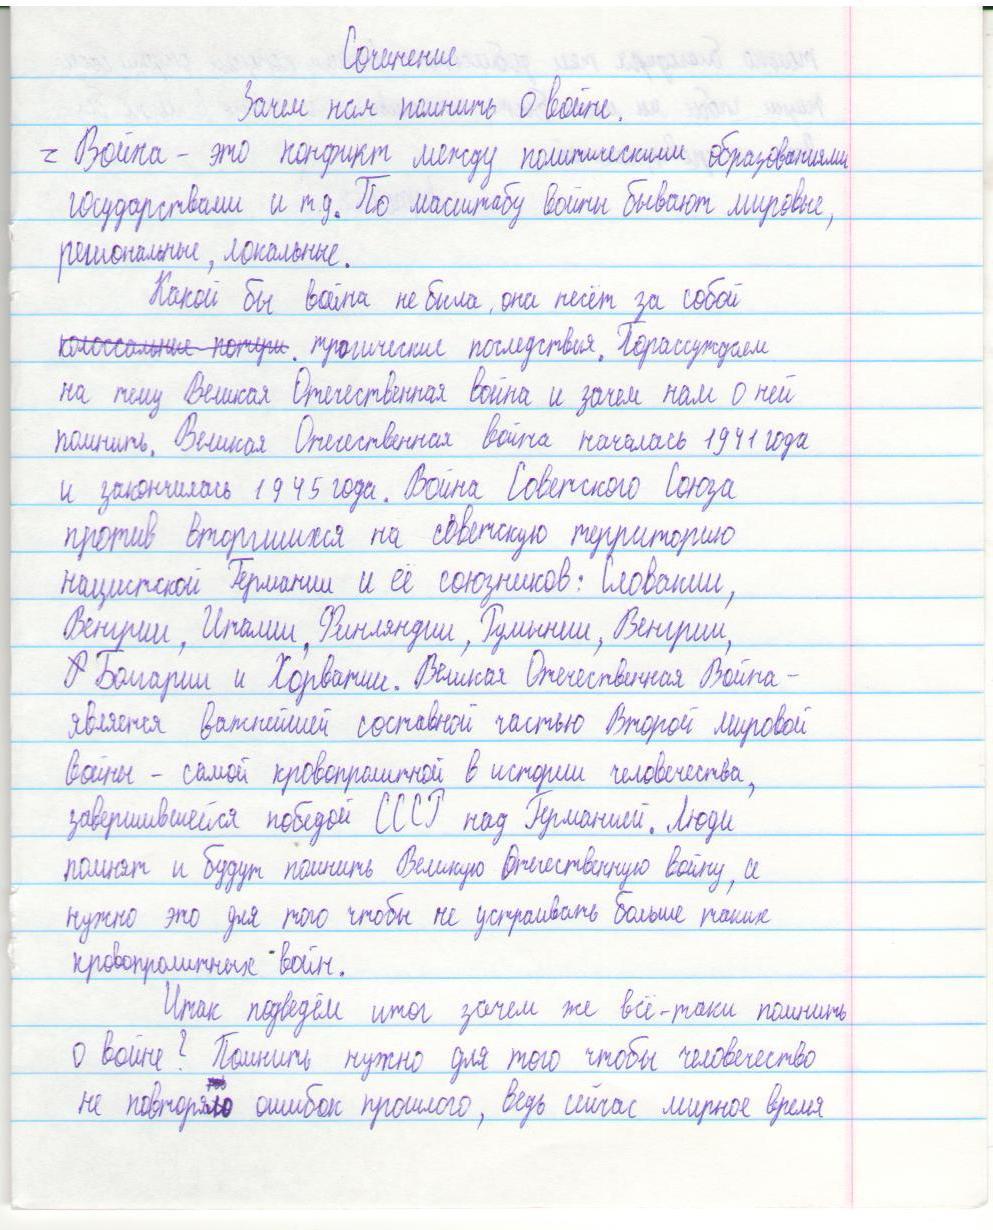 Сочинение
Зачем нам помнить о войне.
Z Война – это конфикт между политическими образованиями
государствами и т д. По масштабу войны бывают мировые,
региональные, локальные.
Какой бы война не была, она несёт за собой
колоссальные потери. трогические последствия. Порассуждаем
на тему Великая Отечественная война и зачем нам о ней
помнить. Великая Отечественная война началась 1941 года
и закончилась 1945 года. Война Советского Союза
против вторгшихся на советскую территорию
нацистской Германии и её союзников: Словакии,
Венгрии, Италии, Финляндии, Румынии, Венгрии,
Болгарии и Хорватии. Великая Отечественная Война –
является важнейшей составной частью Второй мировой
войны – самой кровопролитной в истории человечества,
завершившейся победой СССР над Германией. Люди
помнят и будут помнить Великую Отечественную войну, и
нужно это для того чтобы не устраивать больше таких
кровопролитных войн.
Итак подведём итог зачем же всё-таки помнить
о войне? Помнить нужно для того чтобы человечество
не повторяло ошибок прошлого, ведь сейчас мирное время